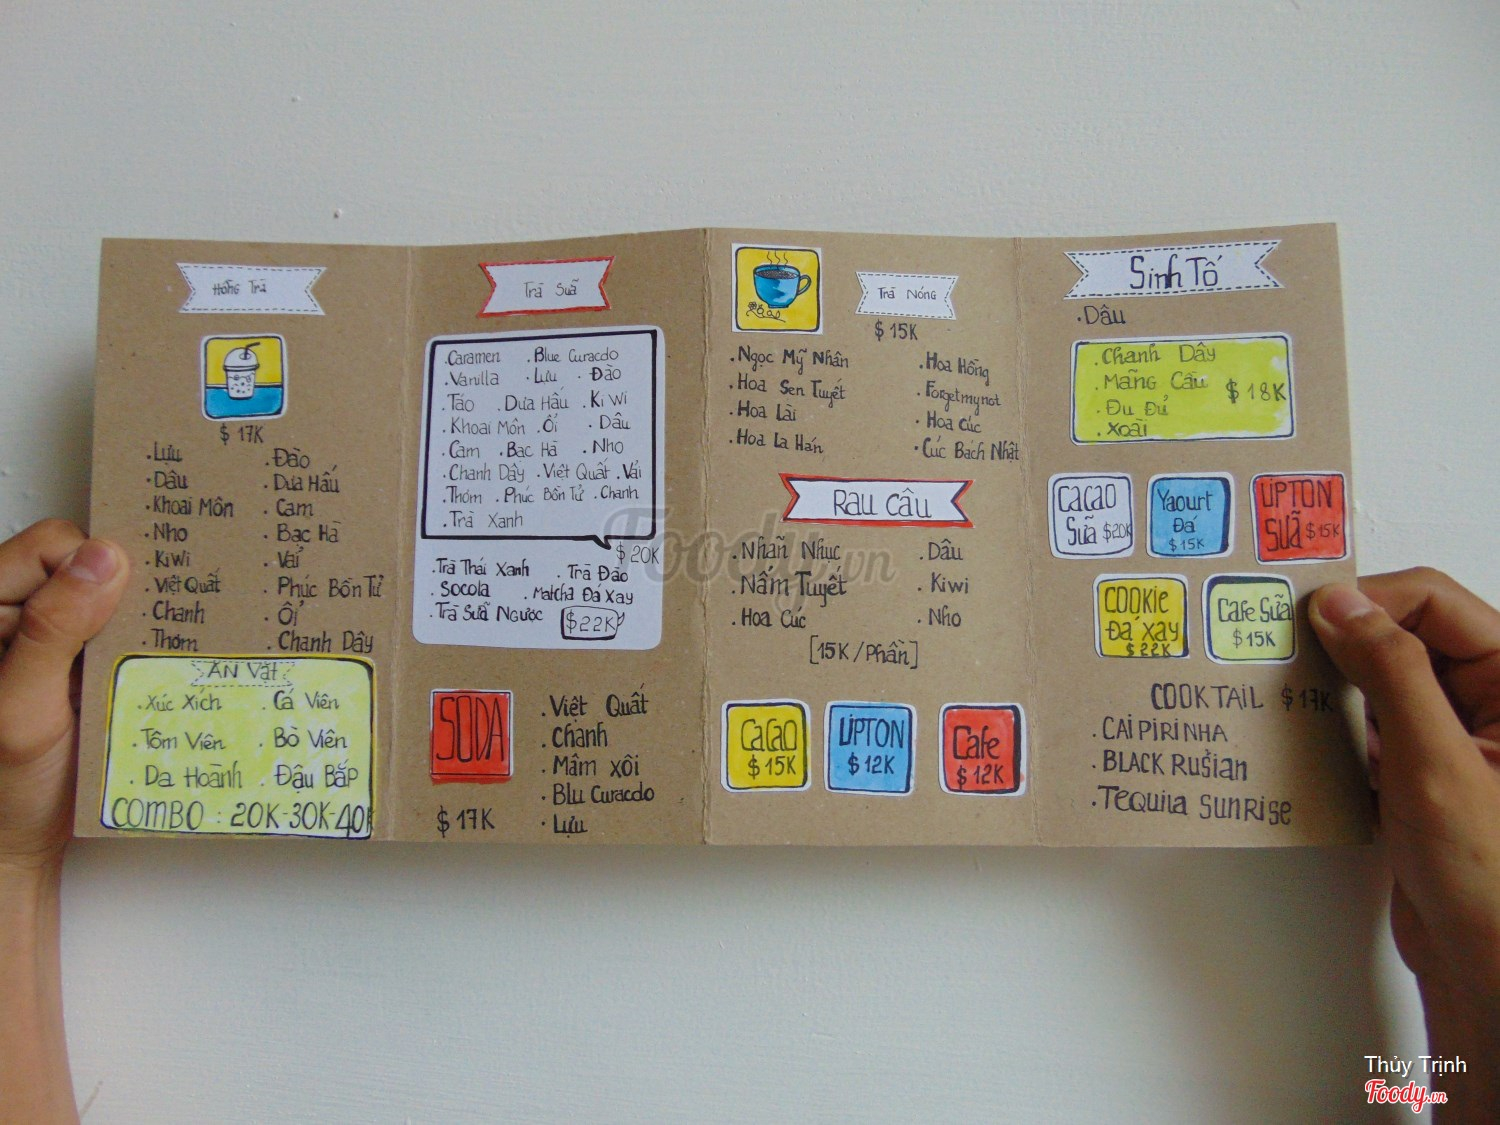 Hồng Trà
$ 17K
. Lựu
. Dâu
. Khoai Môn
. Nho
. Kiwi
. Việt Quất
. Chanh
. Thơm
. Đào
. Dưa Hấu
. Cam
. Bạc Hà
. Vải
. Phúc Bồn Tử
. Ổi
. Chanh Dây
ĂN Vặt
. Xúc Xích . Cá Viên
. Tôm Viên . Bò Viên
. Da Hoành . Đậu Bắp
COMBO : 20K-30K-40K
Trà Sữa
. Caramen . Blue Curacdo
. Vanilla . Lựu . Đào
. Táo . Dưa Hấu . Kiwi
. Khoai Môn . Ổi . Dâu
. Cam . Bạc Hà . Nho
. Chanh Dây . Việt Quất . Vải
. Thơm . Phúc Bồn Tử . Chanh
. Trà Xanh
$ 20K
. Trà Thái Xanh . Trà Đào
. Socola . Matcha Đá Xay
. Trà Sữa Ngược $22K
SODA
$ 17K
. Việt Quất
. Chanh
. Mâm xôi
. Blu Curacdo
. Lựu
Trà Nóng
$ 15K
. Ngọc Mỹ Nhân
. Hoa Sen Tuyết
. Hoa Lài
. Hoa La Hán
. Hoa Hồng
. Forgetmynot
. Hoa Cúc
. Cúc Bách Nhật
Rau Câu
. Nhãn Nhục . Dâu
. Nấm Tuyết . Kiwi
. Hoa Cúc . Nho
[15K/Phần]
CaCao
$ 15K
LIPTON
$ 12K
Cafe
$ 12K
Sinh Tố
. Dâu
. Chanh Dây
. Mãng Cầu $ 18K
. Đu Đủ
. Xoài
CaCao
Sữa $20K
Yaourt
Đá
$ 15K
LIPTON
SỮA $15K
COOKie
ĐÁ XAY
$ 22K
Cafe Sữa
$ 15K
COOKTAIL $ 17K
. CAIPIRINHA
. BLACK RUSSIAN
. TEQUILA SUNRISE
Foody.vn
Thủy Trịnh
Foody.vn